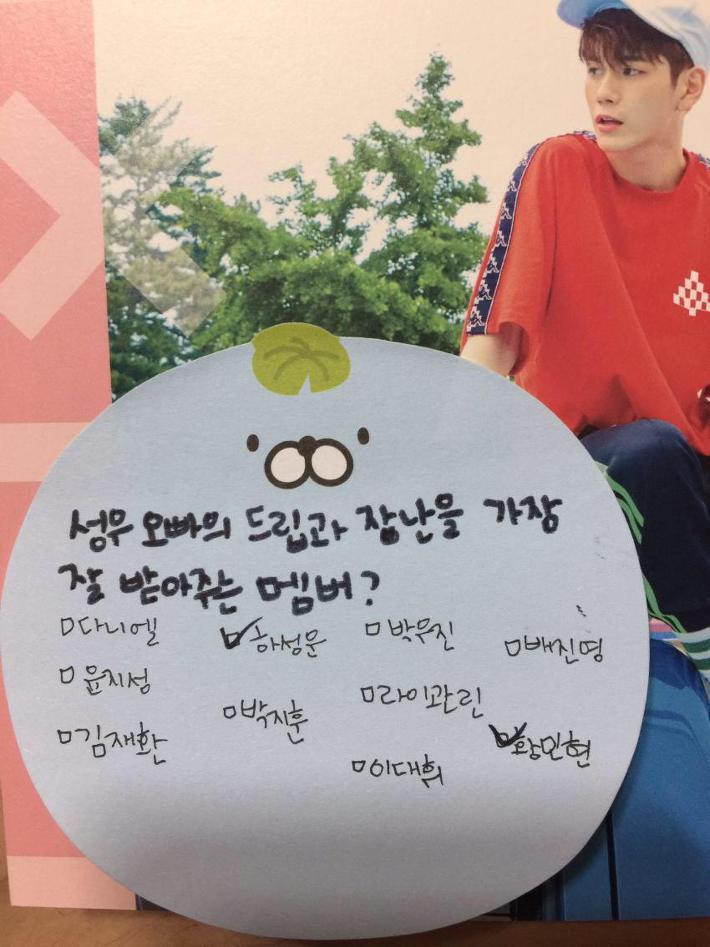 성우 오빠의 드립과 장난을 가장
잘 받아주는 멤버?
다니엘
하성운
박우진
배진영
윤지성
박지훈
라이관린
김재환
이대휘
황민현